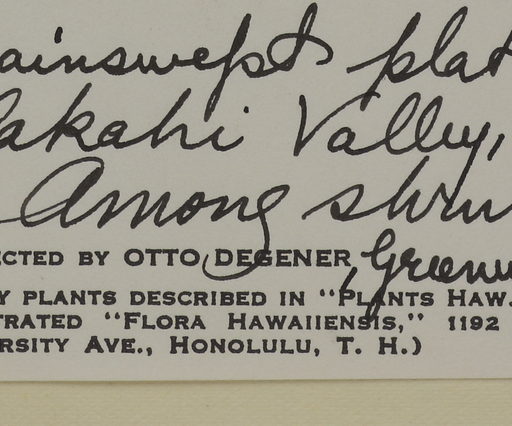 ainswept plat
akahi Valley,
Among shru
ECTED BY OTTO DEGENER, Greenw
Y PLANTS DESCRIBED IN "PLANTS HAW.
TRATED "FLORA HAWAIIENSIS," 1192
RSITY AVE., HONOLULU, T. H.)